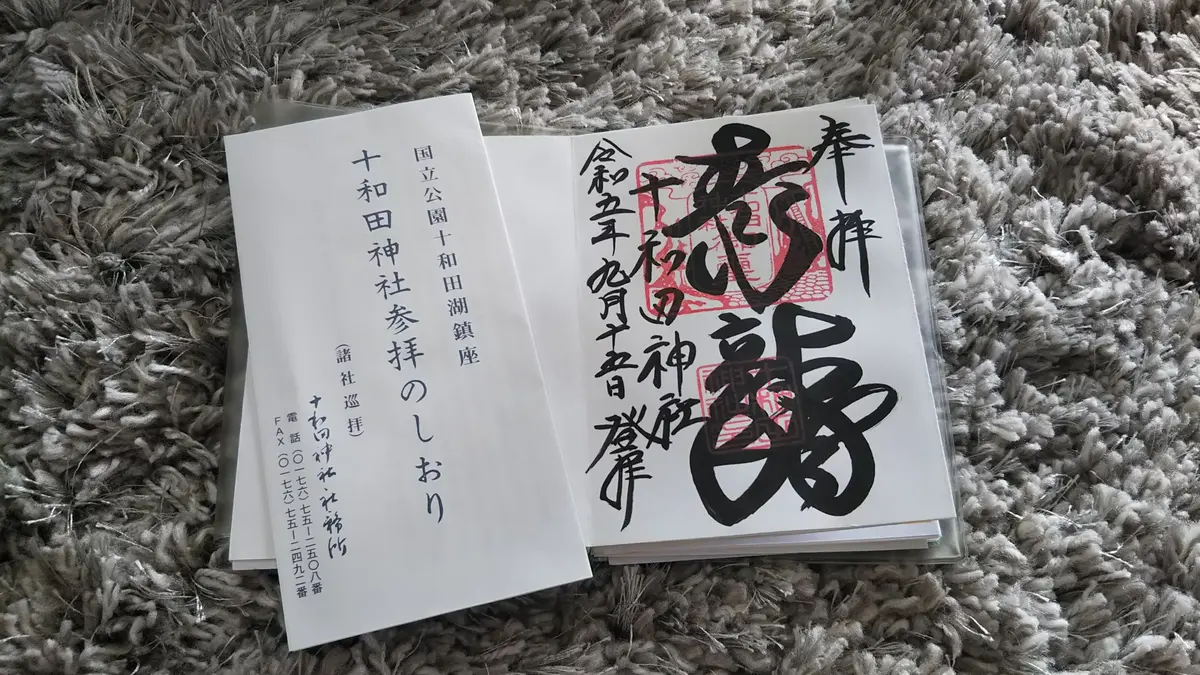 国立公園十和田湖鎮座
十和田神社参拝のしおり
（諸社巡拝）
十和田神社社務所
電話（〇一七六）七五ー二五〇八番
ＦＡＸ（〇一七六）七五ー二四九二番
奉拝
龍
十和田神社
令和五年九月十五日 登拝